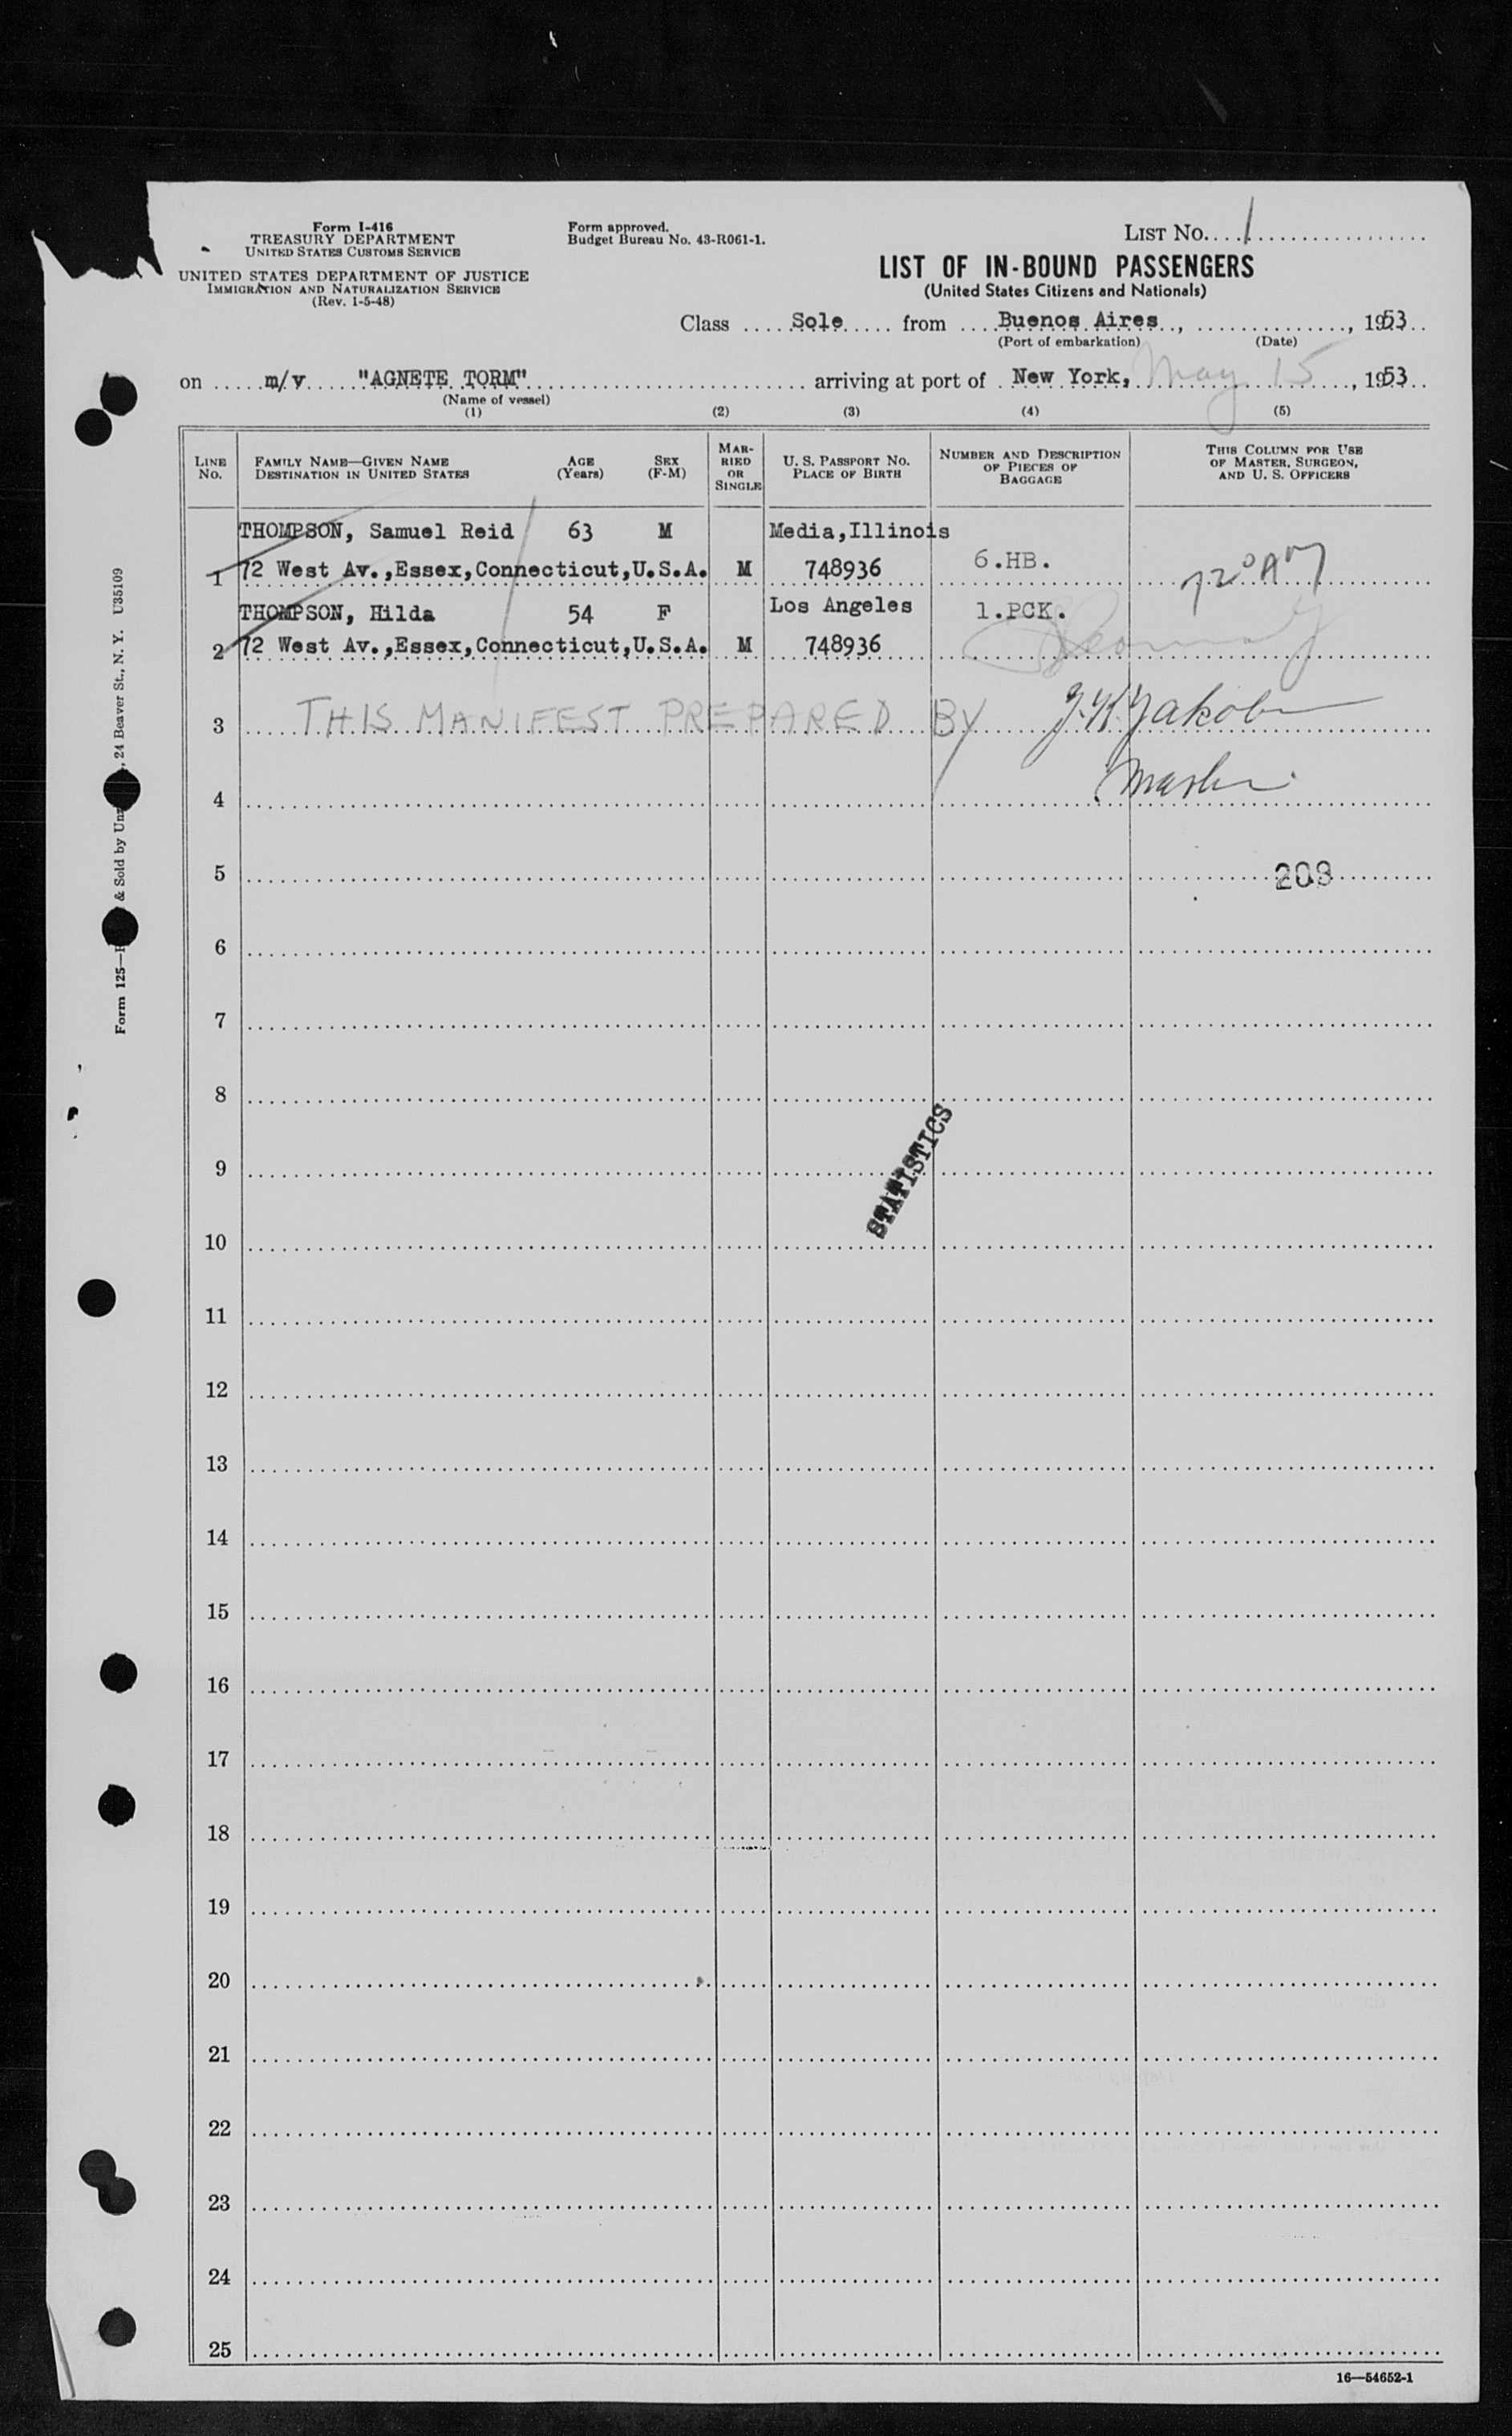 Form I-416
TREASURY DEPARTMENT
UNITED STATES CUSTOMS SERVICE
UNITED STATES DEPARTMENT OF JUSTICE
IMMIGRATION AND NATURALIZATION SERVICE
(Rev. 1-5-48)
Form approved.
Budget Bureau No. 43-R061-1.
LIST No. 1
LIST OF IN-BOUND PASSENGERS
(United States Citizens and Nationals)
Class Sole from Buenos Aires, , 1953
(Port of embarkation) (Date)
on m/v "AGNETE TORM" arriving at port of New York, May 15, 1953
(Name of vessel)
(1) (2) (3) (4) (5)
LINE No.
FAMILY NAME—GIVEN NAME
DESTINATION IN UNITED STATES
AGE (Years)
SEX (F-M)
MARRIED OR SINGLE
U. S. PASSPORT NO.
PLACE OF BIRTH
NUMBER AND DESCRIPTION OF PIECES OF BAGGAGE
THIS COLUMN FOR USE OF MASTER, SURGEON, AND U. S. OFFICERS
THOMPSON, Samuel Reid 63 M Media,Illinois
1 72 West Av.,Essex,Connecticut,U.S.A. M 748936 6.HB.
THOMPSON, Hilda 54 F Los Angeles 1.PCK.
2 72 West Av.,Essex,Connecticut,U.S.A. M 748936
3 THIS MANIFEST PREPARED BY
4 Master
5 208
6
7
8
STATISTICS
9
10
11
12
13
14
15
16
17
18
19
20
21
22
23
24
25
16—54652-1
Form 125— & Sold by , 24 Beaver St., N. Y. U35109